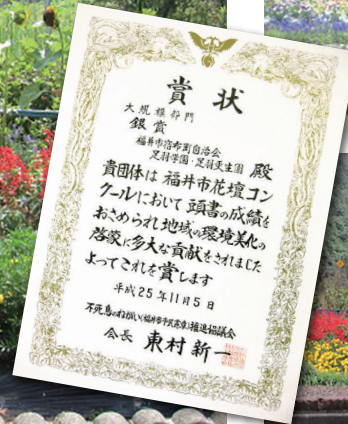 賞状
大規模部門
銀賞
福井市宿布町自治会
足羽学園・足羽更生園 殿
貴団体は福井市花壇コン
クールにおいて頭書の成績を
おさめられ地域の環境美化の
啓蒙に多大な貢献をされました
よってこれを賞します
平成25年11月5日
不死鳥のねがい(福井市市民憲章)推進協議会
会長 東村新一